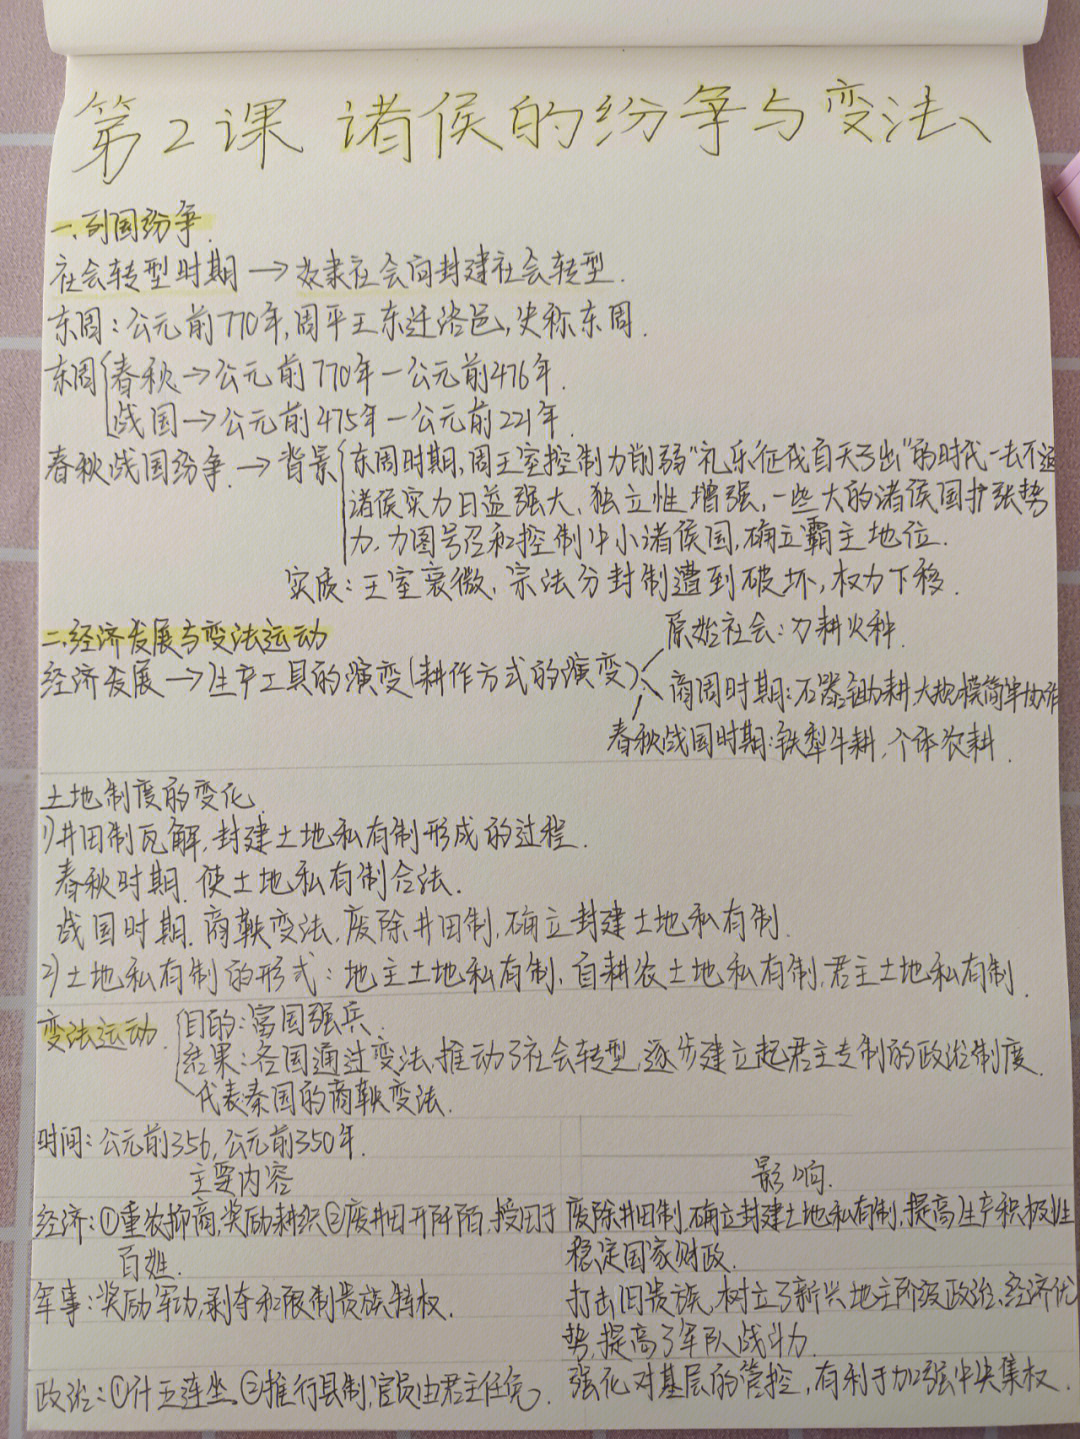 第2课 诸侯的纷争与变法
一.列国纷争.
社会转型时期→奴隶社会向封建社会转型.
东周：公元前770年,周平王东迁洛邑,史称东周.
东周{春秋→公元前770年—公元前476年.
战国→公元前475年—公元前221年.
春秋战国纷争.→背景{东周时期,周王室控制力削弱“礼乐征伐自天子出”的时代一去不返
诸侯实力日益强大,独立性增强,一些大的诸侯国扩张势
力,力图号召和控制中小诸侯国,确立霸主地位.
实质：王室衰微,宗法分封制遭到破坏,权力下移.
二.经济发展与变法运动
原始社会：刀耕火种.
经济发展→生产工具的演变(耕作方式的演变)
商周时期：石器锄耕大规模简单协作
春秋战国时期：铁犁牛耕,个体农耕.
土地制度的变化.
1)井田制瓦解,封建土地私有制形成的过程.
春秋时期.使土地私有制合法.
战国时期.商鞅变法,废除井田制,确立封建土地私有制.
2)土地私有制的形式：地主土地私有制,自耕农土地私有制,君主土地私有制.
变法运动.{目的：富国强兵.
结果：各国通过变法,推动了社会转型,逐步建立起君主专制的政治制度.
代表：秦国的商鞅变法.
时间：公元前356,公元前350年.
主要内容 影响.
经济：①重农抑商,奖励耕织②废井田开阡陌,授田于
百姓.
废除井田制,确立封建土地私有制,提高生产积极性
稳定国家财政.
军事：奖励军功,剥夺和限制贵族特权.
打击旧贵族,树立了新兴地主阶级政治、经济优
势,提高了军队战斗力.
政治：①什五连坐.②推行县制,官员由君主任免.
强化对基层的管控,有利于加强中央集权.